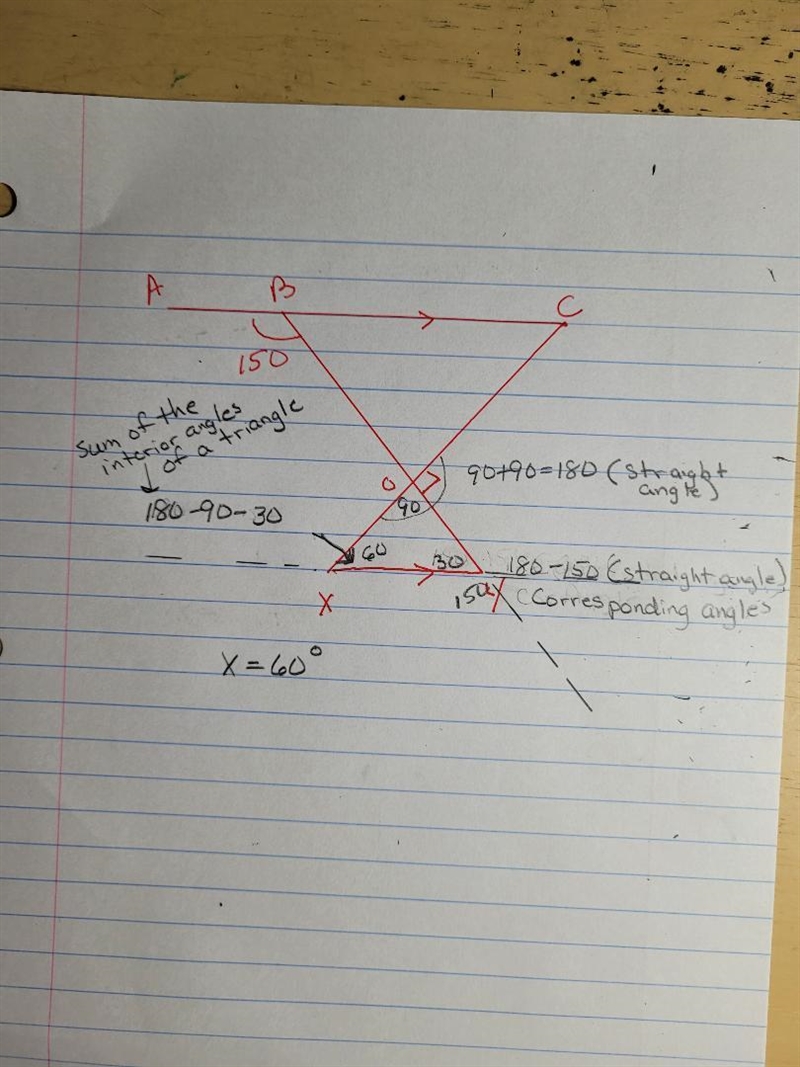 A B C
150
Sum of the
interior angles
of a triangle
180-90-30
O
90
90+90=180 (straight
angle)
60 30 180-150 (straight angle)
150 (Corresponding angles
X
X=60°